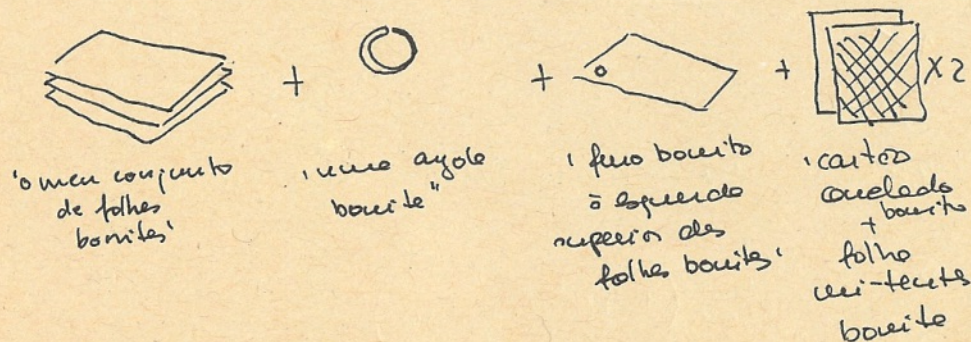 + + + x 2
'o meu conjunto
de folhas
bonitas'
'uma argola
bonita"
'furo bonito
à esquerda
superior das
folhas bonitas'
'cartão
canelado
+ bonito
folha
mi-teintes
bonita